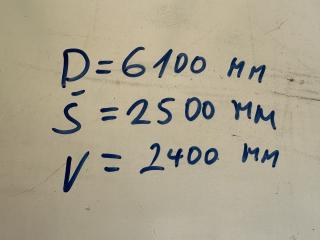 D = 6100 мм
Š = 2500 мм
V = 2400 мм